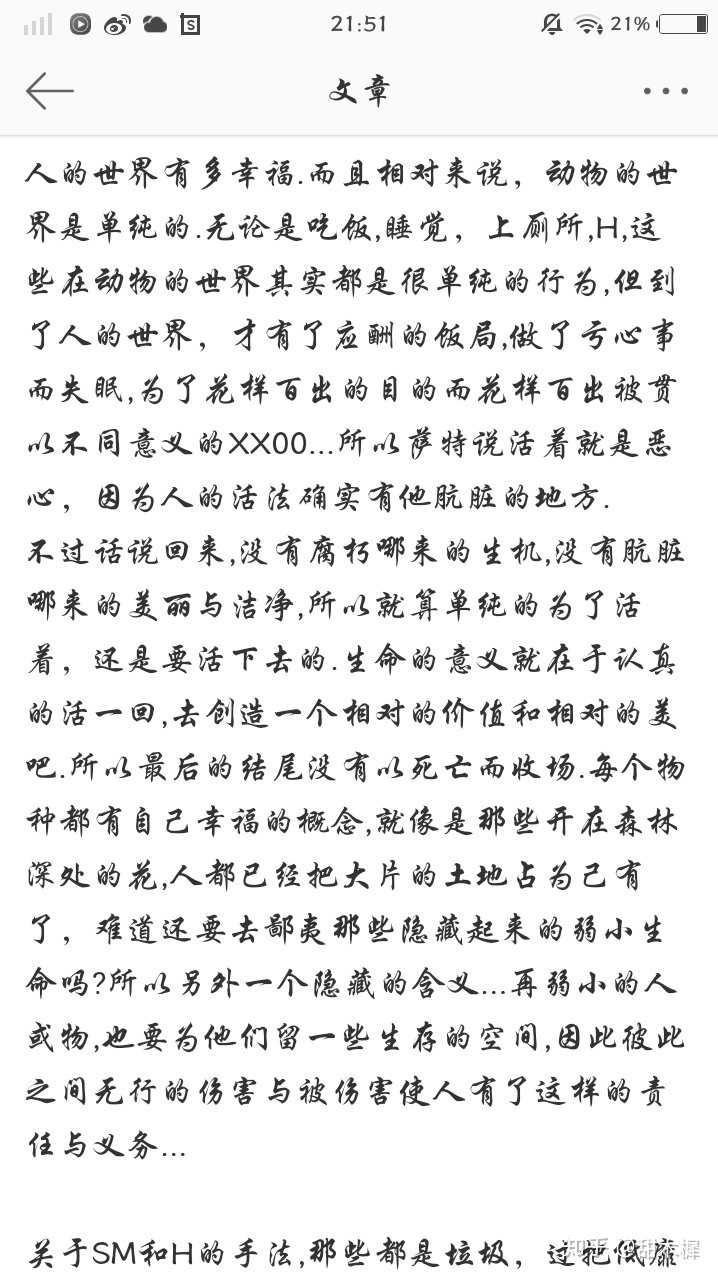 21:51
21%
文章
人的世界有多幸福.而且相对来说，动物的世
界是单纯的.无论是吃饭,睡觉，上厕所,H,这
些在动物的世界其实都是很单纯的行为,但到
了人的世界，才有了应酬的饭局,做了亏心事
而失眠,为了花样百出的目的而花样百出被贯
以不同意义的XX00...所以萨特说活着就是恶
心，因为人的活法确实有他肮脏的地方.
不过话说回来,没有腐朽哪来的生机,没有肮脏
哪来的美丽与洁净,所以就算单纯的为了活
着，还是要活下去的.生命的意义就在于认真
的活一回,去创造一个相对的价值和相对的美
吧.所以最后的结尾没有以死亡而收场.每个物
种都有自己幸福的概念,就像是那些开在森林
深处的花,人都已经把大片的土地占为己有
了，难道还要去鄙夷那些隐藏起来的弱小生
命吗?所以另外一个隐藏的含义...再弱小的人
或物,也要为他们留一些生存的空间,因此彼此
之间无行的伤害与被伤害使人有了这样的责
任与义务...
关于SM和H的手法,那些都是垃圾，过把低靡
知乎 @甜